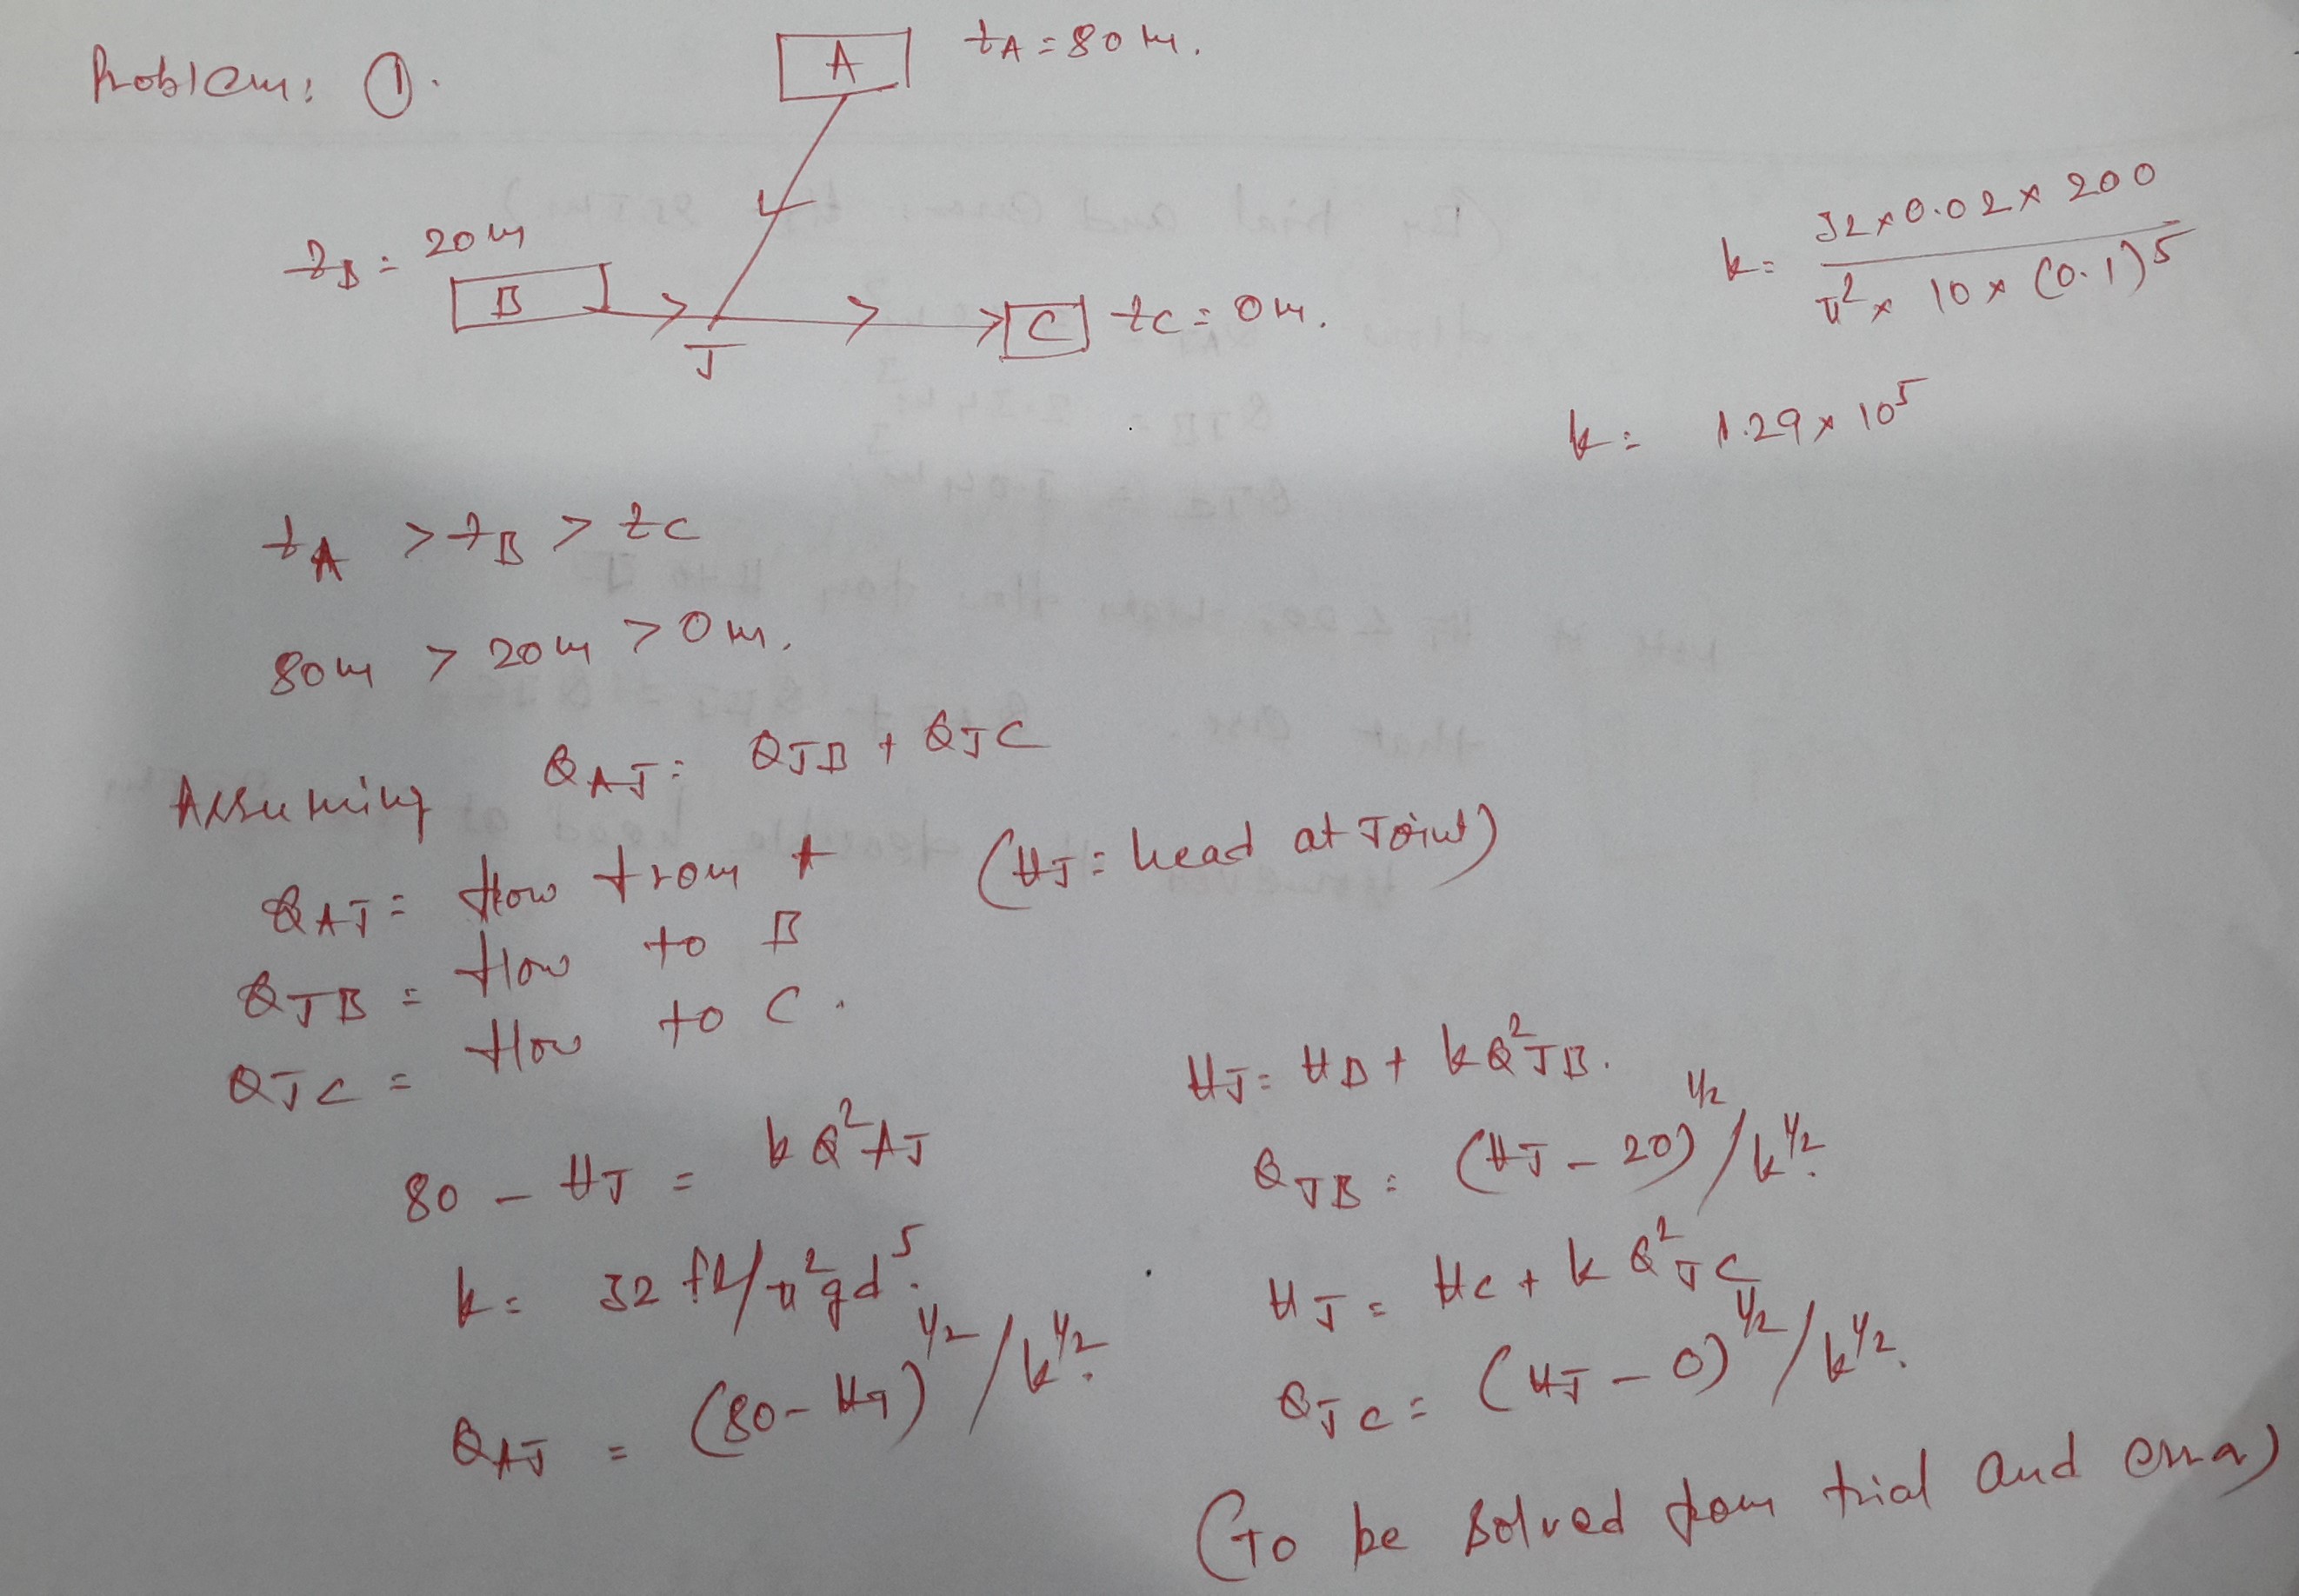 Problem: ①.
A
zA = 80 m.
zB = 20 m
B
J
C
zC = 0 m.
k = 32 × 0.02 × 200 / π² × 10 × (0.1)⁵
k = 1.29 × 10⁵
zA > zB > zC
80m > 20m > 0m.
Assuming QAJ = QJB + QJC
QAJ = flow from A (HJ = head at Joint)
QJB = flow to B
QJC = flow to C.
80 - HJ = kQ²AJ
k = 32 fl/π²gd⁵.
QAJ = (80 - HJ)^1/2 / k^1/2.
HJ = HB + kQ²JB.
QJB = (HJ - 20)^1/2 / k^1/2.
HJ = HC + kQ²JC
QJC = (HJ - 0)^1/2 / k^1/2.
(To be solved from trial and error)